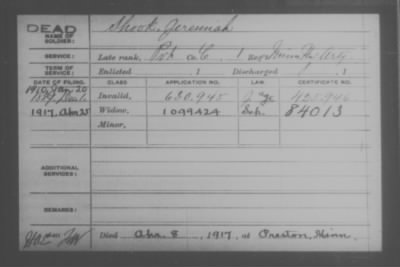 DEAD
NAME OF SOLDIER: Shook, Jeremiah
SERVICE: Late rank, Pvt Co. C, 1 Reg't Minn. Hvy Arty.
TERM OF SERVICE: Enlisted 1 Discharged , 1
DATE OF FILING. CLASS APPLICATION NO. LAW CERTIFICATE NO.
1910, Jan 20
Invalid, 630.945
1917, Apr 25 Widow, 1099424 84013
Minor,
ADDITIONAL SERVICES:
REMARKS:
Died Apr. 8, 1917, at Preston, Minn.